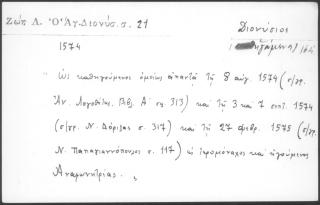 Ζώη Λ. Ὁ Ἅγ. Διονύσ. σ. 21
Διονύσιος
1574
Ὡς καθηγούμενος ὁμοίως ἀπαντᾷ τῇ 8 αὐγ. 1574 (σ/γρ.
Ἀν. Λογοθέτ. Βιβλ. Α΄ σ. 313) καὶ τῇ 3 καὶ 7 σεπτ. 1574
(σ/γρ. Ν. Δόριζας σ. 317) καὶ τῇ 27 φεβρ. 1575 (σ/γρ.
Ν. Παπαγιαννόπουλος σ. 117) ὡς ἱερομόναχος καὶ ἡγούμενος
Ἀναφωνητρίας.